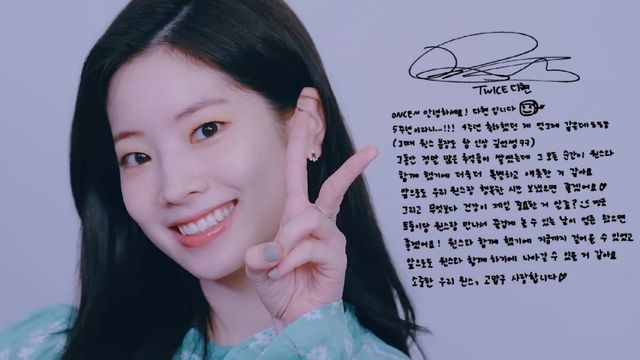 TWICE 다현
ONCE~ 안녕하세요! 다현입니다
5주년이라니...!!! 4주년 축하했던 게 엊그제 같은데ㅎㅎㅎ
(그때 원스 분장도 참 인상 깊었성ㅋㅋ)
그동안 정말 많은 추억들이 쌓였는데 그 모든 순간이 원스와
함께 했기에 더욱더 특별하고 애틋한 거 같아요
앞으로도 우리 원스랑 행복한 시간 보냈으면 좋겠어요♡
그리고 무엇보다 건강이 제일 중요한 거 알죠?
트둥이랑 원스랑 만나서 즐겁게 놀 수 있는 날이 얼른 왔으면
좋겠어요! 원스와 함께 했기에 지금까지 걸어올 수 있었고
앞으로도 원스와 함께 하기에 나아갈 수 있을 거 같아요
소중한 우리 원스, 고맙구 사랑합니다♡